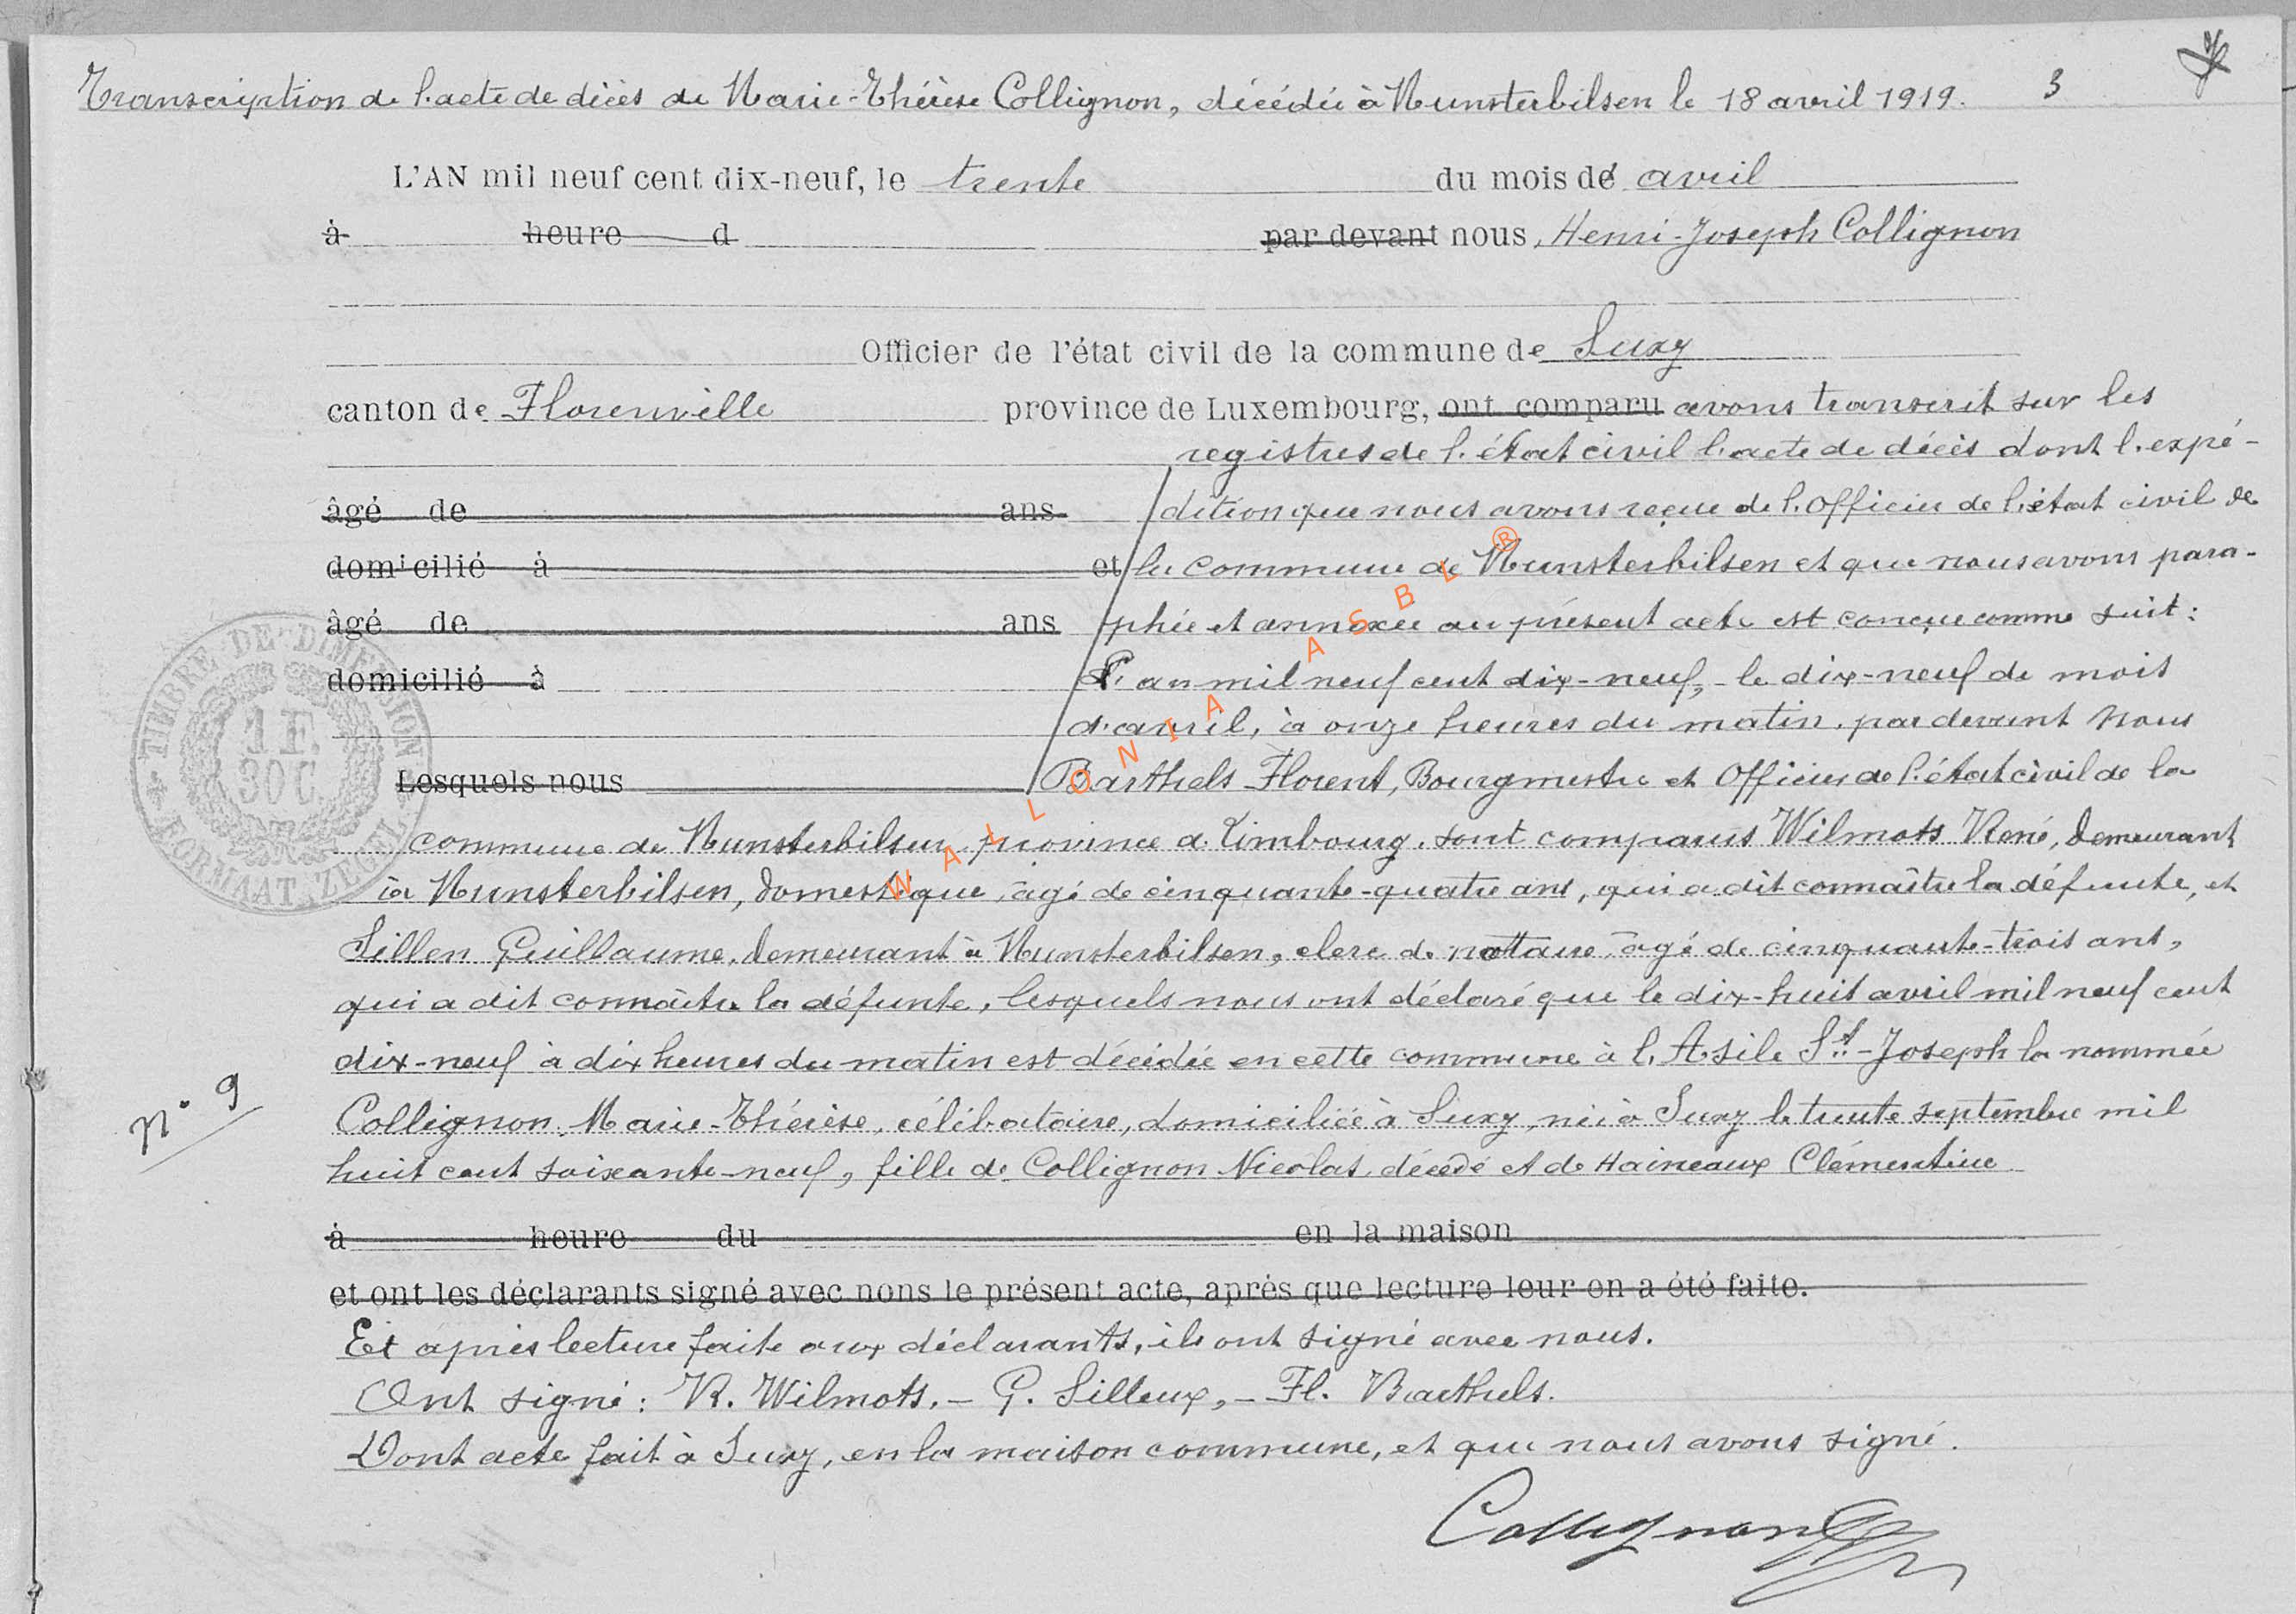 Transcription de l'acte de décès de Marie-Thérèse Collignon, décédée à Munsterbilsen le 18 avril 1919.
3
L'AN mil neuf cent dix-neuf, le trente du mois d' avril
à heure d par devant nous, Henri-Joseph Collignon
Officier de l'état civil de la commune de Suxy
canton de Florenville province de Luxembourg, ont comparu avons transcrit sur les
registres de l'état civil l'acte de décès dont l'expé-
âgé de ans dition que nous avons reçue de l'Officier de l'état civil de
domicilié à et la commune de Munsterbilsen et que nous avons para-
âgé de ans phée et annexée au présent acte est conçue comme suit :
domicilié à L'an mil neuf cent dix-neuf, le dix-neuf de mois
d'avril, à onze heures du matin, par devant nous
Lesquels nous Barthels Florent, Bourgmestre et Officier de l'état civil de la
commune de Munsterbilsen, province d. Limbourg, sont comparus Wilmots René, demeurant
à Munsterbilsen, domestique, âgé de cinquante-quatre ans, qui a dit connaître la défunte, et
Sillen Guillaume, demeurant à Munsterbilsen, clerc de notaire, âgé de cinquante-trois ans,
qui a dit connaître la défunte, lesquels nous ont déclaré que le dix-huit avril mil neuf cent
dix-neuf à dix heures du matin est décédée en cette commune à l'Asile St-Joseph la nommée
N° 9
Collignon Marie-Thérèse, célibataire, domiciliée à Suxy, née à Suxy le trente septembre mil
huit cent soixante-neuf, fille de Collignon Nicolas, décédé et de Haineaux Clémentine
à heure du en la maison
et ont les déclarants signé avec nous le présent acte, après que lecture leur en a été faite.
Et après lecture faite aux déclarants, ils ont signé avec nous.
Ont signé : R. Wilmots. – G. Silleux, – Fl. Barthels.
Dont acte fait à Suxy, en la maison commune, et que nous avons signé.
Collignon
TIMBRE DE DIMENSION
1 F.
30 C.
FORMAAT ZEGEL
WALLONIA ASBL ®